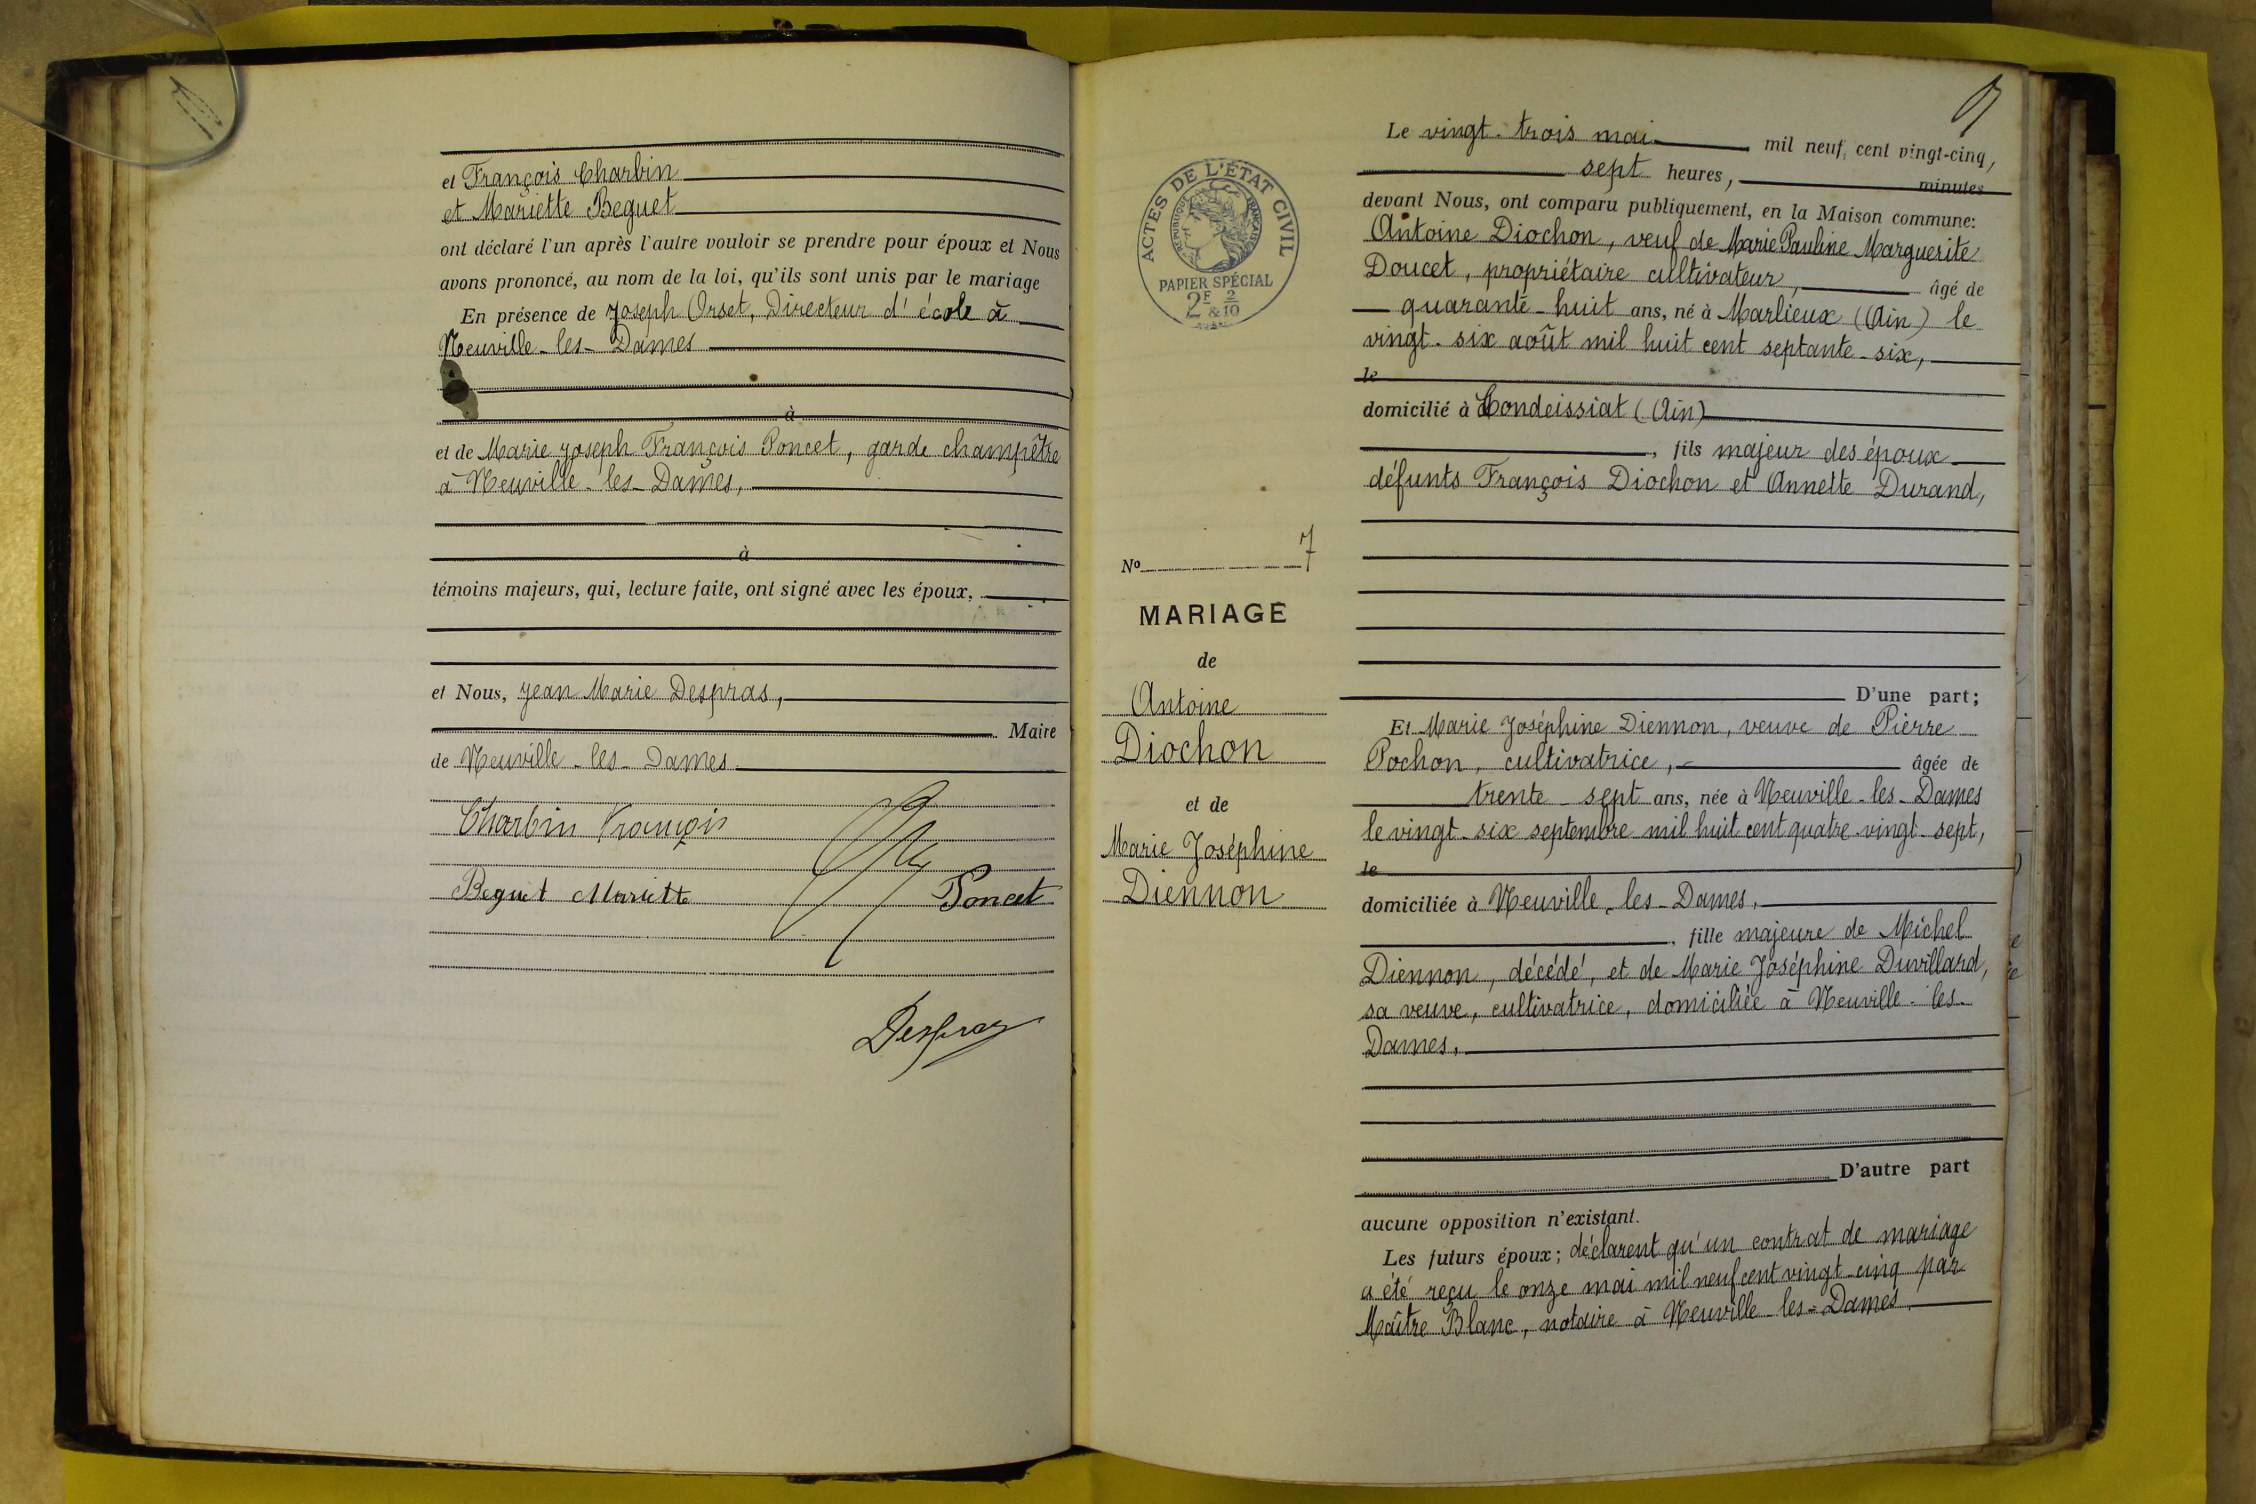 et François Charbin
et Mariette Beguet
ont déclaré l'un après l'autre vouloir se prendre pour époux et Nous
avons prononcé, au nom de la loi, qu'ils sont unis par le mariage
En présence de Joseph Orset, Directeur d'école à
Neuville-les-Dames
à
et de Marie Joseph François Poncet, garde champêtre
à Neuville-les-Dames,
à
témoins majeurs, qui, lecture faite, ont signé avec les époux,
et Nous, Jean Marie Despras,
Maire
de Neuville-les-Dames
Charbin François
Beguet Mariette
Poncet
Despras
ACTES DE L'ÉTAT CIVIL
RÉPUBLIQUE FRANÇAISE
PAPIER SPÉCIAL
2F & 2/10
No 7
MARIAGE
de
Antoine
Diochon
et de
Marie Joséphine
Diennon
Le vingt-trois mai mil neuf cent vingt-cinq,
sept heures, minutes
devant Nous, ont comparu publiquement, en la Maison commune:
Antoine Diochon, veuf de Marie Pauline Marguerite
Doucet, propriétaire cultivateur, âgé de
quarante-huit ans, né à Marlieux (Ain) le
vingt-six août mil huit cent septante-six,
le
domicilié à Condeissiat (Ain)
, fils majeur des époux
défunts François Diochon et Annette Durand,
D'une part;
Et Marie Joséphine Diennon, veuve de Pierre
Pochon, cultivatrice, âgée de
trente-sept ans, née à Neuville-les-Dames
le vingt-six septembre mil huit cent quatre-vingt-sept,
le
domiciliée à Neuville-les-Dames,
, fille majeure de Michel
Diennon, décédé, et de Marie Joséphine Duvillard,
sa veuve, cultivatrice, domiciliée à Neuville-les-
Dames.
D'autre part
aucune opposition n'existant.
Les futurs époux; déclarent qu'un contrat de mariage
a été reçu le onze mai mil neuf cent vingt-cinq par
Maître Blanc, notaire à Neuville-les-Dames.